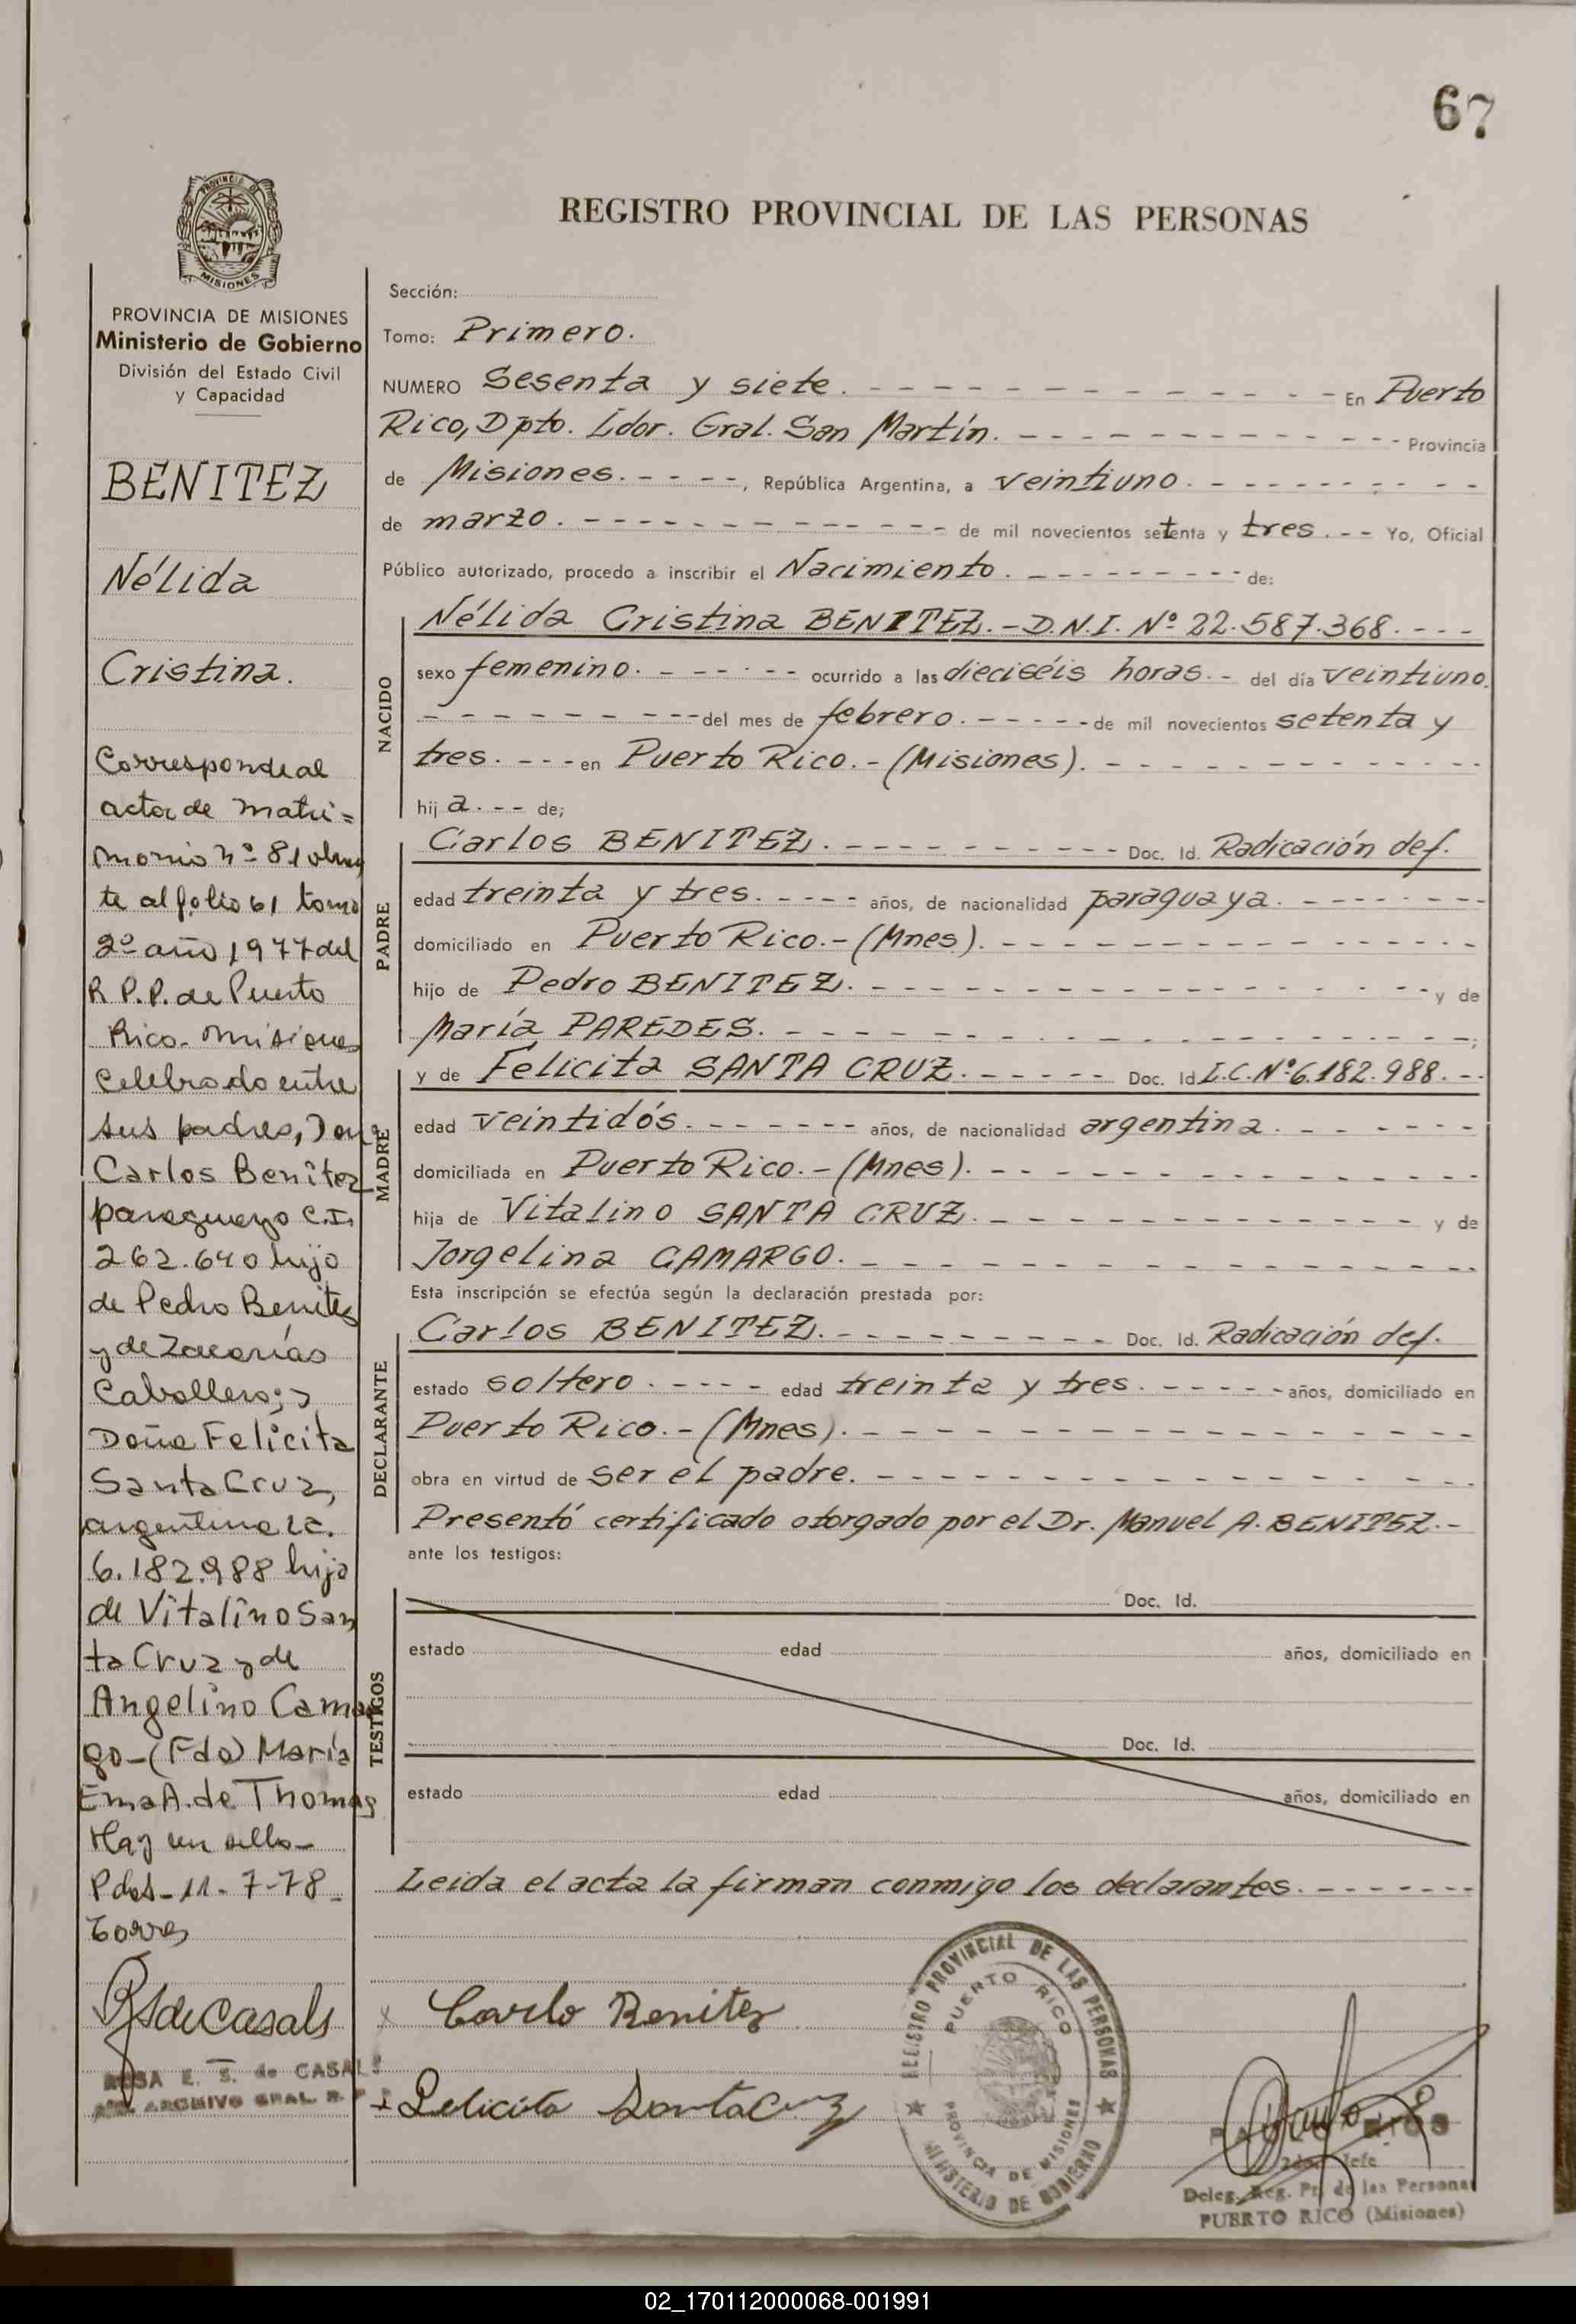 67
PROVINCIA DE
MISIONES
REGISTRO PROVINCIAL DE LAS PERSONAS
PROVINCIA DE MISIONES
Ministerio de Gobierno
División del Estado Civil
y Capacidad
BENITEZ
Nélida
Cristina.
Corresponde al
acta de matri=
monio nº 81 obran
te al folio 61 tomo
2º año 1977 del
R.P.P. de Puerto
Rico. Misiones
Celebrado entre
sus padres, Don
Carlos Benítez
paraguayo C.I.
262.640 hijo
de Pedro Benitez
y de Zacarías
Caballero; y
Doña Felícita
Santa Cruz,
argentina LC.
6.182.988 hija
de Vitalino San
ta Cruz y de
Angelino Camar
go-(Fdo) María
Ema A. de Thomas
Hay un sello-
Pdas-11-7-78-
Torres
RSdeCasals
ROSA E. S. de CASALS
ARCHIVO GRAL. R. P. P.
Sección:
Tomo: Primero.
NUMERO Sesenta y siete. - - - En Puerto
Rico, Dpto. Ldor. Gral. San Martín. - - - Provincia
de Misiones. - - - -, República Argentina, a veintiuno. - - -
de marzo. - - - de mil novecientos setenta y tres. - - Yo, Oficial
Público autorizado, procedo a inscribir el Nacimiento. - - - de:
NACIDO
Nélida Cristina BENITEZ. - D.N.I. Nº 22.587.368. - - -
sexo femenino. - - - ocurrido a las dieciséis horas. - del día veintiuno.
- - - del mes de febrero. - - - de mil novecientos setenta y
tres. - - - en Puerto Rico. - (Misiones). - - -
hij a. - - de;
PADRE
Carlos BENITEZ. - - - Doc. Id. Radicación def.
edad treinta y tres. - - - años, de nacionalidad paraguaya. - - -
domiciliado en Puerto Rico. - (Mnes). - - -
hijo de Pedro BENITEZ. - - - y de
María PAREDES. - - - ;
MADRE
y de Felicita SANTA CRUZ. - - - Doc. Id L.C. Nº 6.182.988. - -
edad veintidós. - - - años, de nacionalidad argentina. - - -
domiciliada en Puerto Rico. - (Mnes). - - -
hija de Vitalino SANTA CRUZ. - - - y de
Jorgelina CAMARGO. - - -
Esta inscripción se efectúa según la declaración prestada por:
DECLARANTE
Carlos BENITEZ. - - - Doc. Id. Radicación def.
estado soltero. - - - edad treinta y tres. - - - años, domiciliado en
Puerto Rico. - (Mnes). - - -
obra en virtud de ser el padre. - - -
Presentó certificado otorgado por el Dr. Manuel A. BENITEZ. -
ante los testigos:
TESTIGOS
Doc. Id.
estado edad años, domiciliado en
Doc. Id.
estado edad años, domiciliado en
Leida el acta la firman conmigo los declarantes. - - -
x Carlo Benitez
x Felicita SantaCruz
REGISTRO PROVINCIAL DE LAS PERSONAS
PUERTO RICO
PROVINCIA DE MISIONES
MINISTERIO DE GOBIERNO
2do. Jefe
Deleg. Reg. Pr. de las Personas
PUERTO RICO (Misiones)
02_170112000068-001991